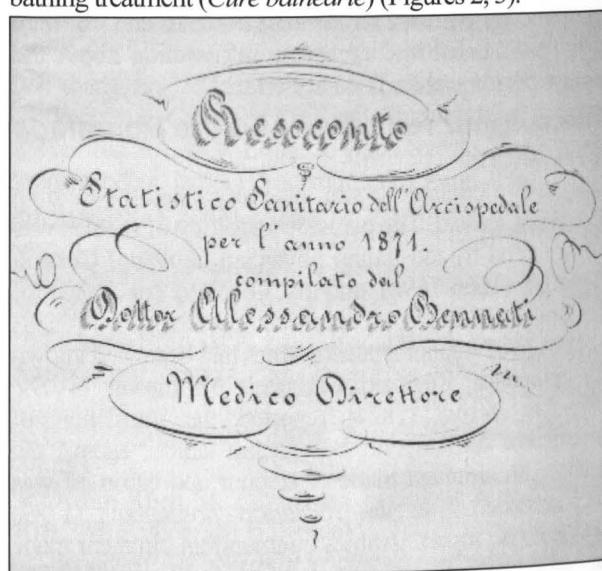 bathing treatment (Cure balnearie) (Figures 2, 3).
Resoconto
Statistico Sanitario dell'Arcispedale
per l'anno 1871.
compilato dal
Dottor Alessandro Bennati
Medico Direttore